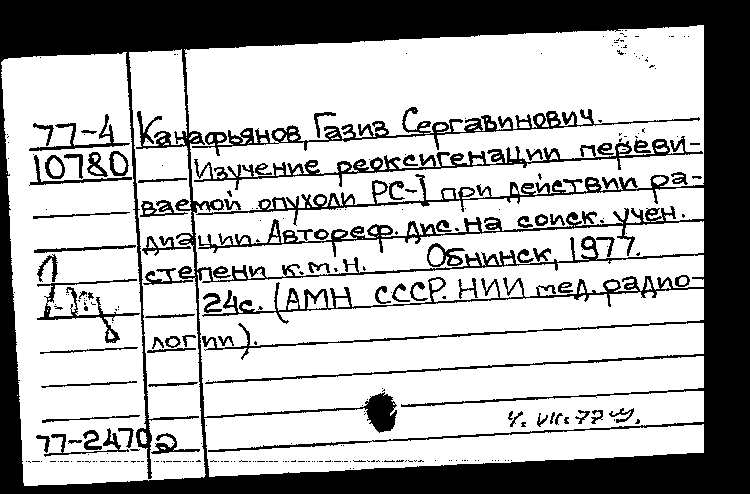 77-4 Канафьянов, Газиз Сергавинович.
10780 Изучение реоксигенации переви-
ваемой опухоли РС-I при действии ра-
диации. Автореф. дис. на соиск. учен.
степени к.м.н. Обнинск, 1977.
24с. (АМН СССР. НИИ мед. радио-
логии).
77-2470